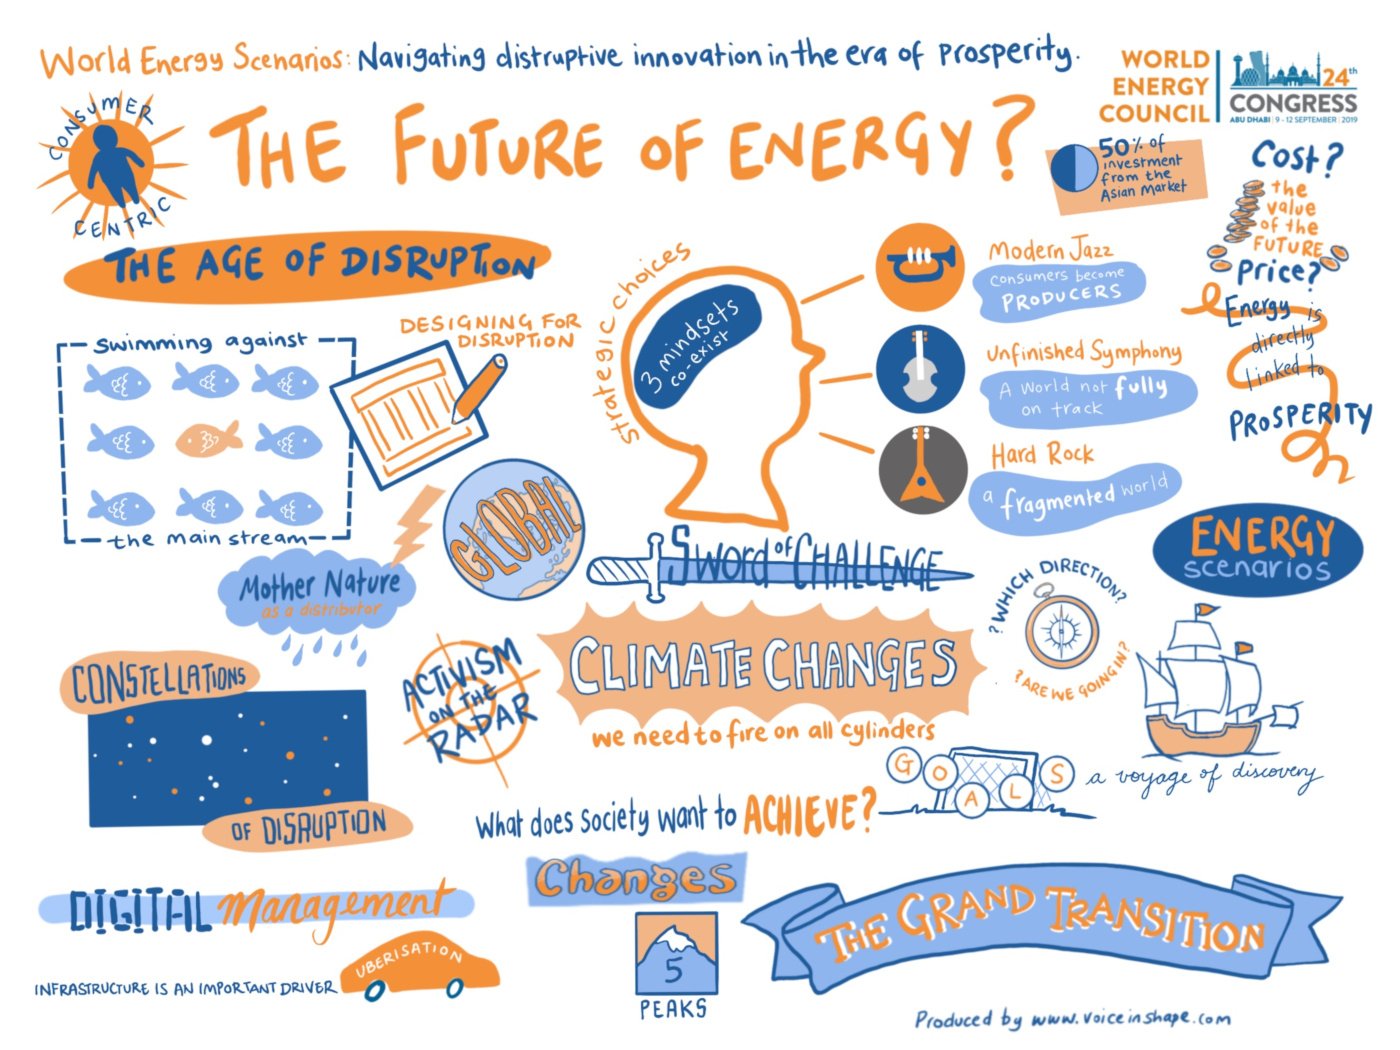 World Energy Scenarios: Navigating distruptive innovation in the era of prosperity.
WORLD
ENERGY
COUNCIL
24th
CONGRESS
ABU DHABI | 9 - 12 SEPTEMBER | 2019
CONSUMER
CENTRIC
THE FUTURE OF ENERGY?
50% of
investment
from the
Asian Market
Cost?
the
value
of the
FUTURE
Price?
Energy is
directly
linked to
PROSPERITY
THE AGE OF DISRUPTION
Swimming against
the main stream
DESIGNING FOR
DISRUPTION
Strategic choices
3 mindsets
co-exist
Modern Jazz
consumers become
PRODUCERS
Unfinished Symphony
A world not fully
on track
Hard Rock
a fragmented world
GLOBAL
Mother Nature
as a distributor
Sword of CHALLENGE
ENERGY
scenarios
? WHICH DIRECTION?
? ARE WE GOING IN?
CLIMATE CHANGES
we need to fire on all cylinders
ACTIVISM
ON THE
RADAR
CONSTELLATIONS
OF DISRUPTION
a voyage of discovery
GOALS
What does society want to ACHIEVE?
Changes
5
PEAKS
DIGITAL management
UBERISATION
INFRASTRUCTURE IS AN IMPORTANT DRIVER
THE GRAND TRANSITION
Produced by www.voiceinshape.com